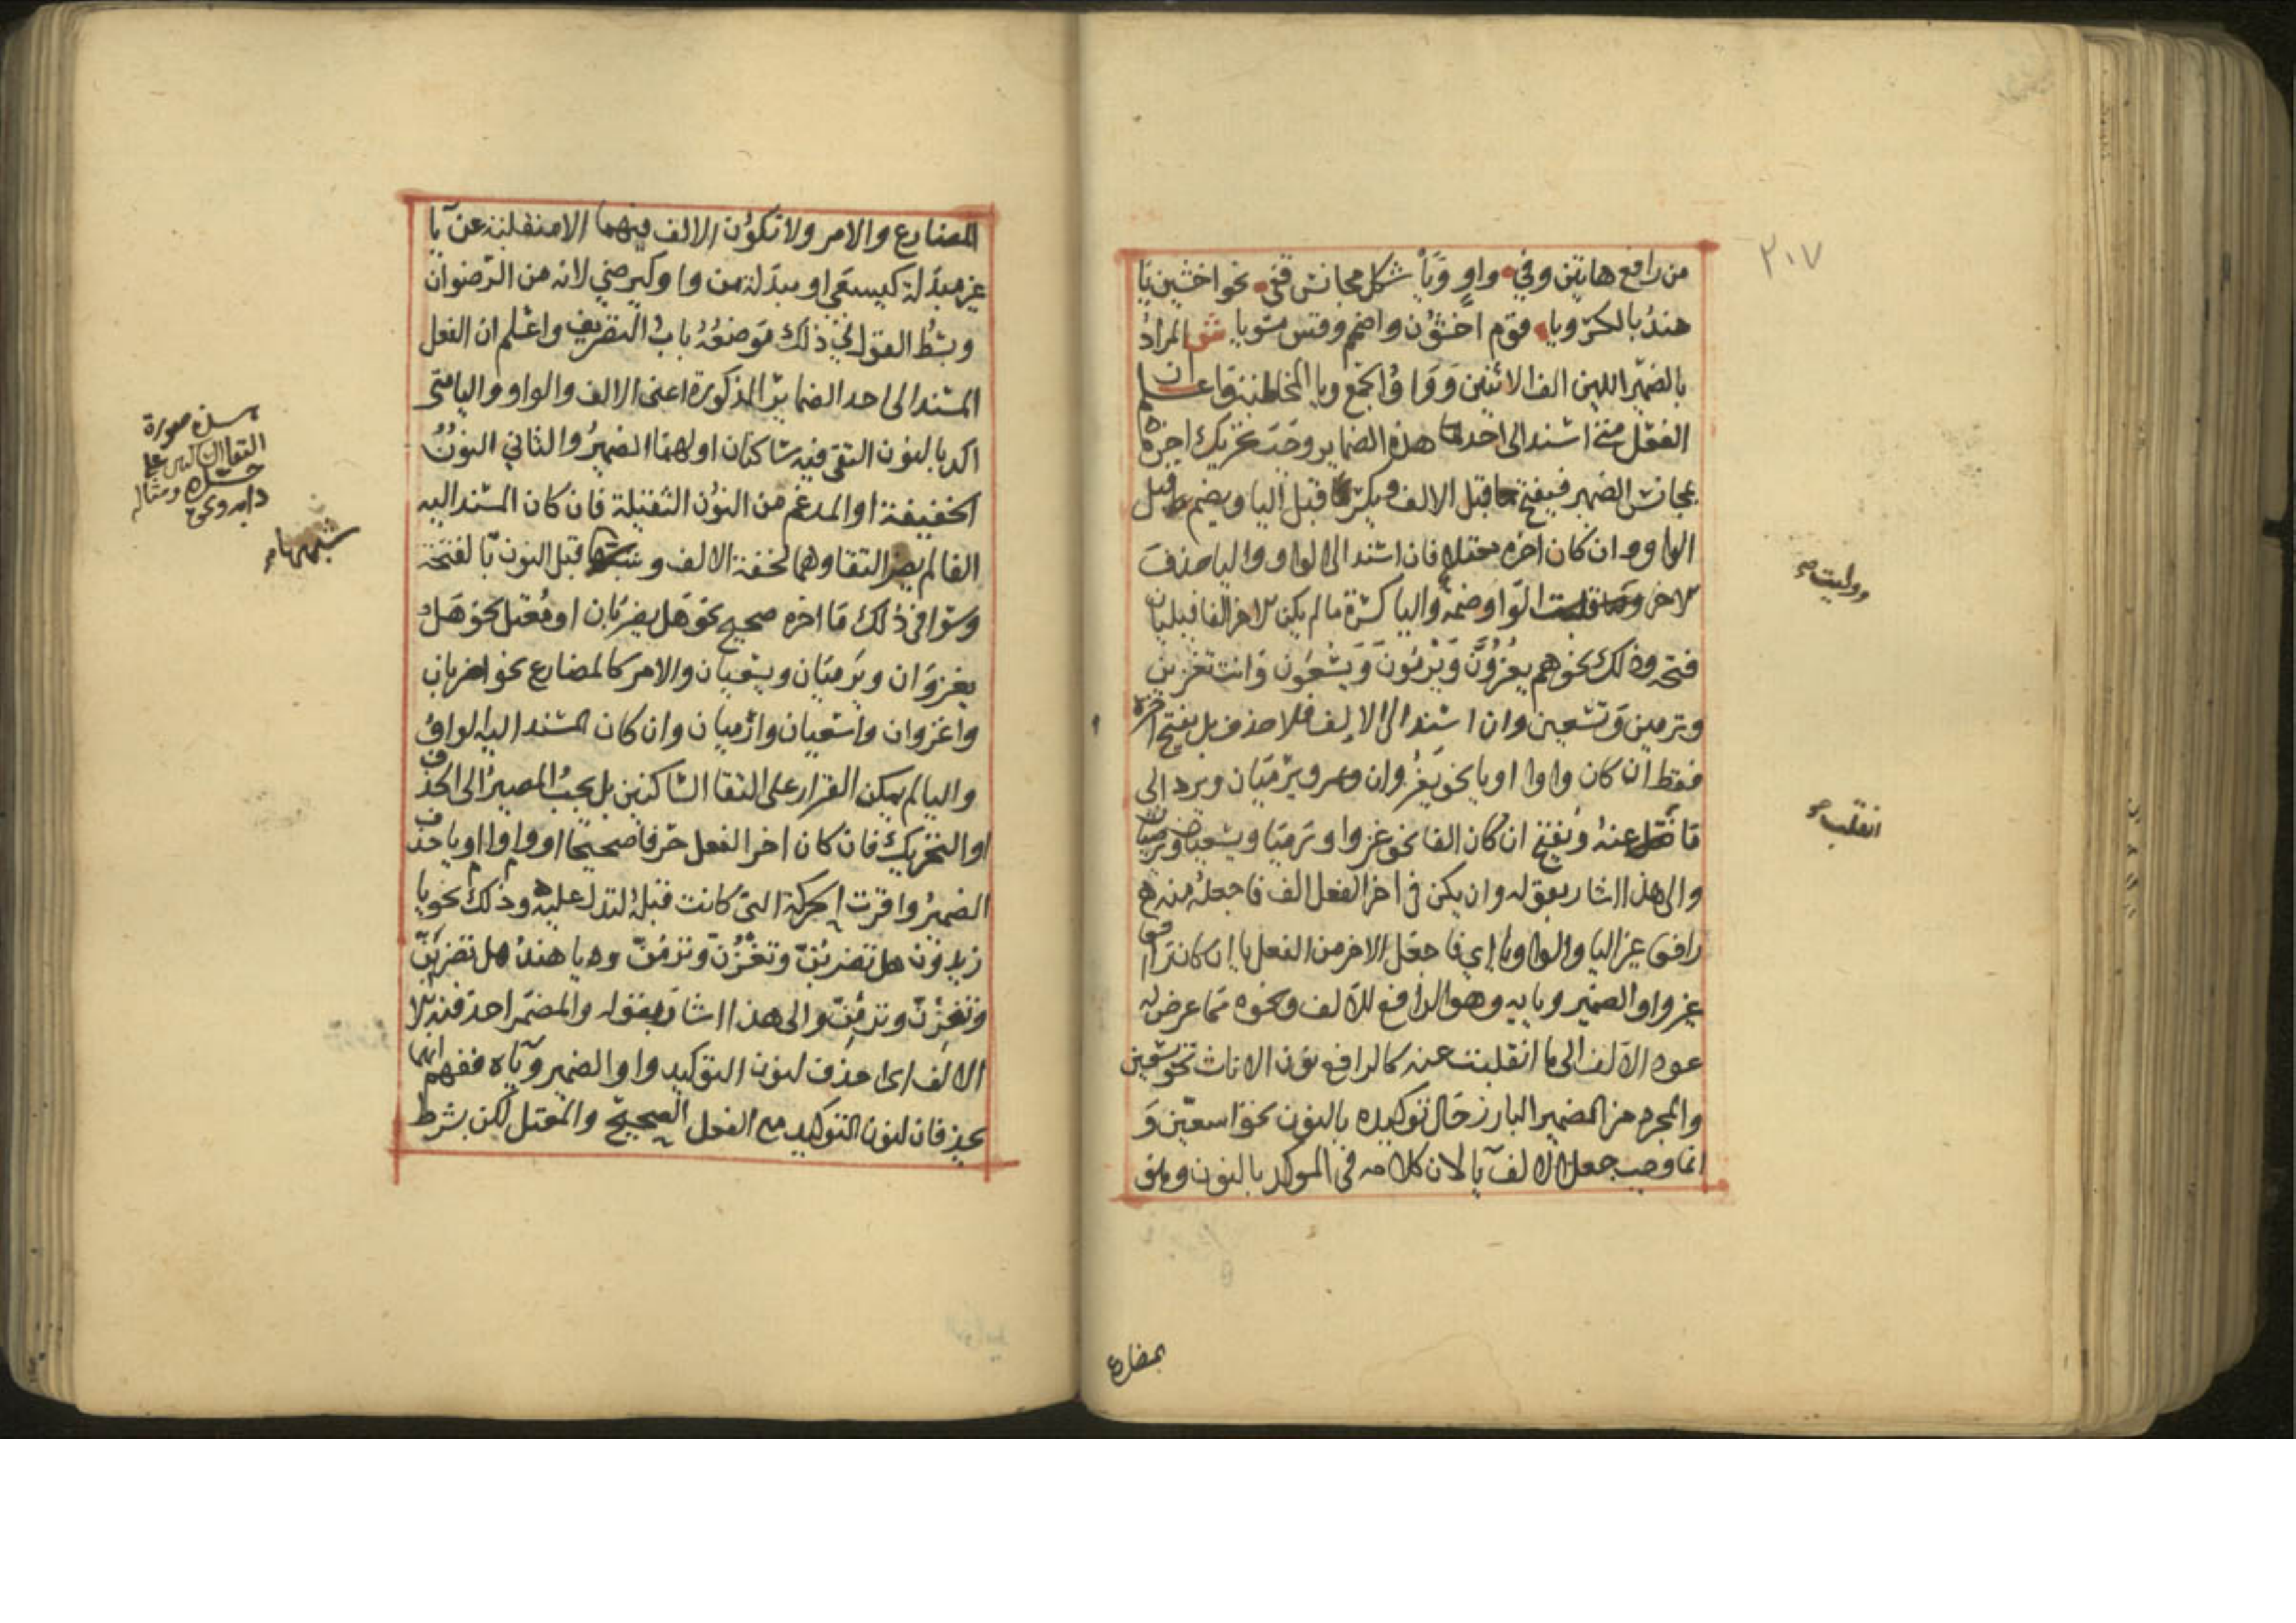 ٢٠٧
من رافع هاتين وفي واو ويا شكل مجانس قفي نحو اخشين يا
هند بالكسر ويا قوم اخشون واضمم وقس مسويا ش المراد
بالضمير اللين الف الاثنين وواو الجمع ويا المخاطبة فاعلم ان
الفعل متى اسند الى احد هذه الضماير وجب تحريك اخره
بمجانس الضمير فيفتح ما قبل الالف ويكسر ما قبل اليا ويضم ما قبل
الواو وان كان اخره معتلا فان اسند الى الواو واليا حذف
الاخر ووليت الواو ضمة واليا كسرة ما لم يكن الاخر الفا فيليان
فتحه وذلك نحو هم يغزون ويرمون ويسعون وانت تغزين
وترمين وتسعين وان اسند الى الالف فلا حذف بل يفتح اخره
فقط ان كان واوا او يا نحو يغزوان ويرميان ويرد الى
ما انقلب عنه ويفتح ان كان الفا نحو غزوا ورميا ويسعيان ويرضيان
والى هذا اشار بقوله وان يكن في اخر الفعل الف فاجعله منه
رافعا غير اليا والواو يا اي فاجعل الاخر من الفعل يا ان كان رافعا
غير واو الضمير ويايه وهو الرافع للالف ونحوه مما عرض له
عود الالف الى ما انقلبت عنه كالرافع نون الاناث نحو يسعين
والمجرد من الضمير البارز حال توكيده بالنون نحو اسعين و
انما وجب جعل الالف يا لان كلامه في الموكد بالنون وهو
ووليت صح
انقلب صح
المضارع
المضارع والامر ولا تكون الالف فيهما الا منقلبة عن يا
غير مبدلة كيسعى او مبدلة من واو كيرضى لانه من الرضوان
وبسط القول في ذلك موضعه باب التصريف واعلم ان الفعل
المسند الى احد الضماير المذكورة اعني الالف والواو واليا متى
اكد بالنون التقى فيه ساكنان اولهما الضمير والثاني النون
الخفيفة او المدغم من النون الثقيلة فان كان المسند اليه
الفا لم يضر التقاوهما لخفة الالف وشبهها قبل النون بالفتحة
وسوا في ذلك ما اخره صحيح نحو هل يضربان او معتل نحو هل
يغزوان ويرميان ويسعيان والامر كالمضارع نحو اضربان
واغزوان واسعيان وارميان وان كان المسند اليه الواو
واليا لم يمكن القرار على التقا الساكنين بل يجب المصير الى الحذف
او التحريك فان كان اخر الفعل حرفا صحيحا او واوا او يا حذف
الضمير واقرت الحركة التي كانت قبله لتدل عليه وذلك نحو يا
زيدون هل تضربن وتغزن وترمن ويا هند هل تضربن
وتغزن وترمن والى هذا اشار بقوله والمضمر احذفنه الا
الالف اي احذف لنون التوكيد واو الضمير وياه ففهم انهما
يحذفان لنون التوكيد مع الفعل الصحيح والمعتل لكن بشرط
صورة
التقا الساكنين على
حده ومثاله
دابه
شبهها صح